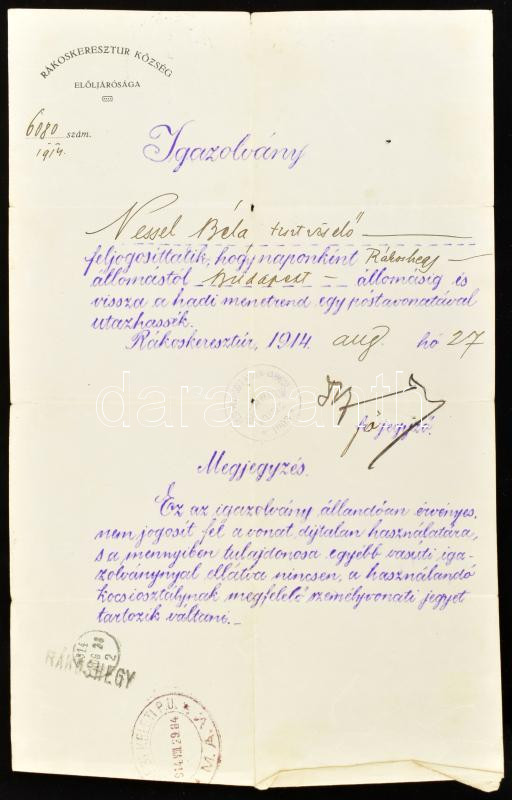 RÁKOSKERESZTUR KÖZSÉG
ELŐLJÁRÓSÁGA
6080 szám.
1914.
Igazolvány
Vessel Béla
feljogosíttatik, hogy naponként Rákoshegy
állomástól Budapest állomásig és
vissza a hadi menetrend egy postavonatával
utazhassék.
Rákoskeresztúr, 1914. aug. hó 27
főjegyző.
Megjegyzés.
Ez az igazolvány állandóan érvényes,
nem jogosít fel a vonat díjtalan használatára,
s a mennyiben tulajdonosa egyébb vasuti iga-
zolványnyal ellátva nincsen, a használandó
kocsiosztálynak megfelelő személyvonati jegyet
tartozik váltani.
RÁKOSHEGY
KELETI P.U.
914 VIII 29.
M.A.V.
darabanth